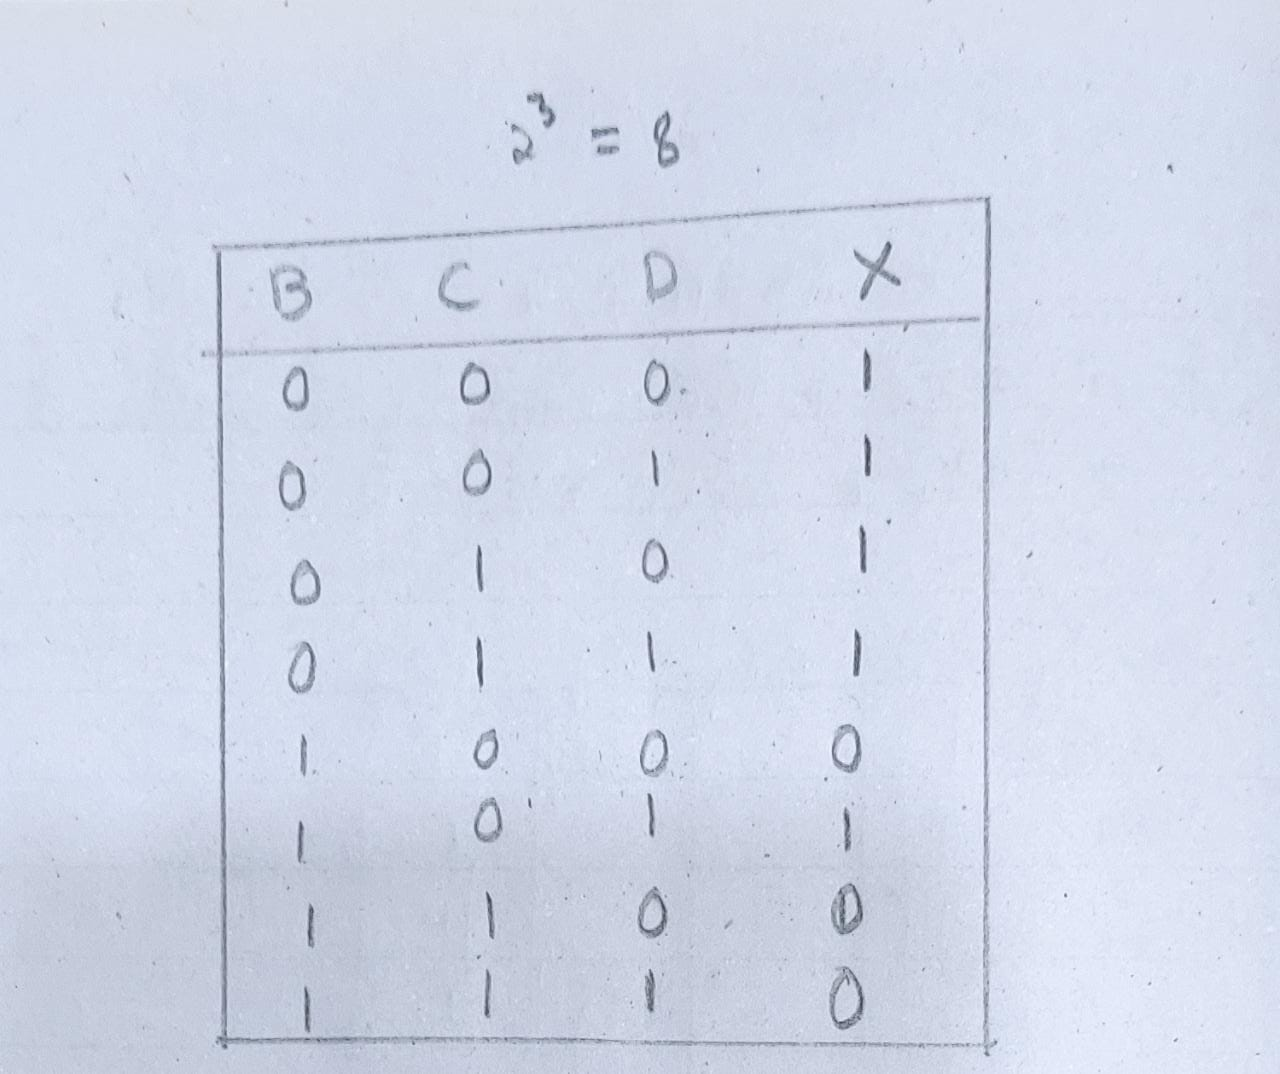 2³ = 8
B C D X
0 0 0 1
0 0 1 1
0 1 0 1
0 1 1 1
1 0 0 0
1 0 1 1
1 1 0 0
1 1 1 0